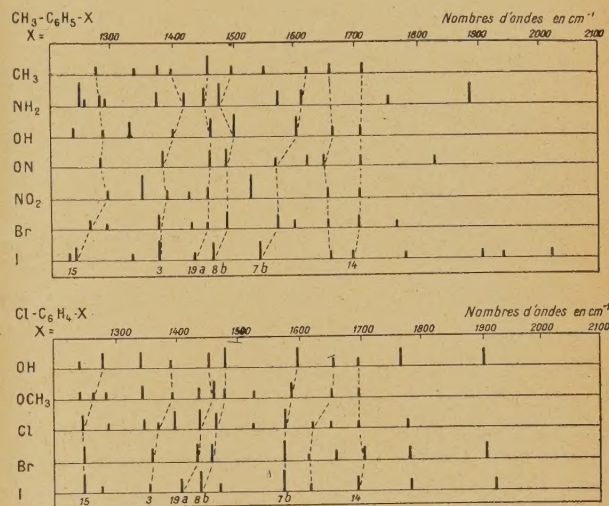 CH₃-C₆H₅-X Nombres d'ondes en cm⁻¹
X = 1300 1400 1500 1600 1700 1800 1900 2000 2100
CH₃
NH₂
OH
ON
NO₂
Br
I
15 3 19 a 8 b 7 b 14
Cl-C₆H₄-X Nombres d'ondes en cm⁻¹
X = 1300 1400 1500 1600 1700 1800 1900 2000 2100
OH
OCH₃
Cl
Br
I
15 3 19 a 8 b 7 b 14